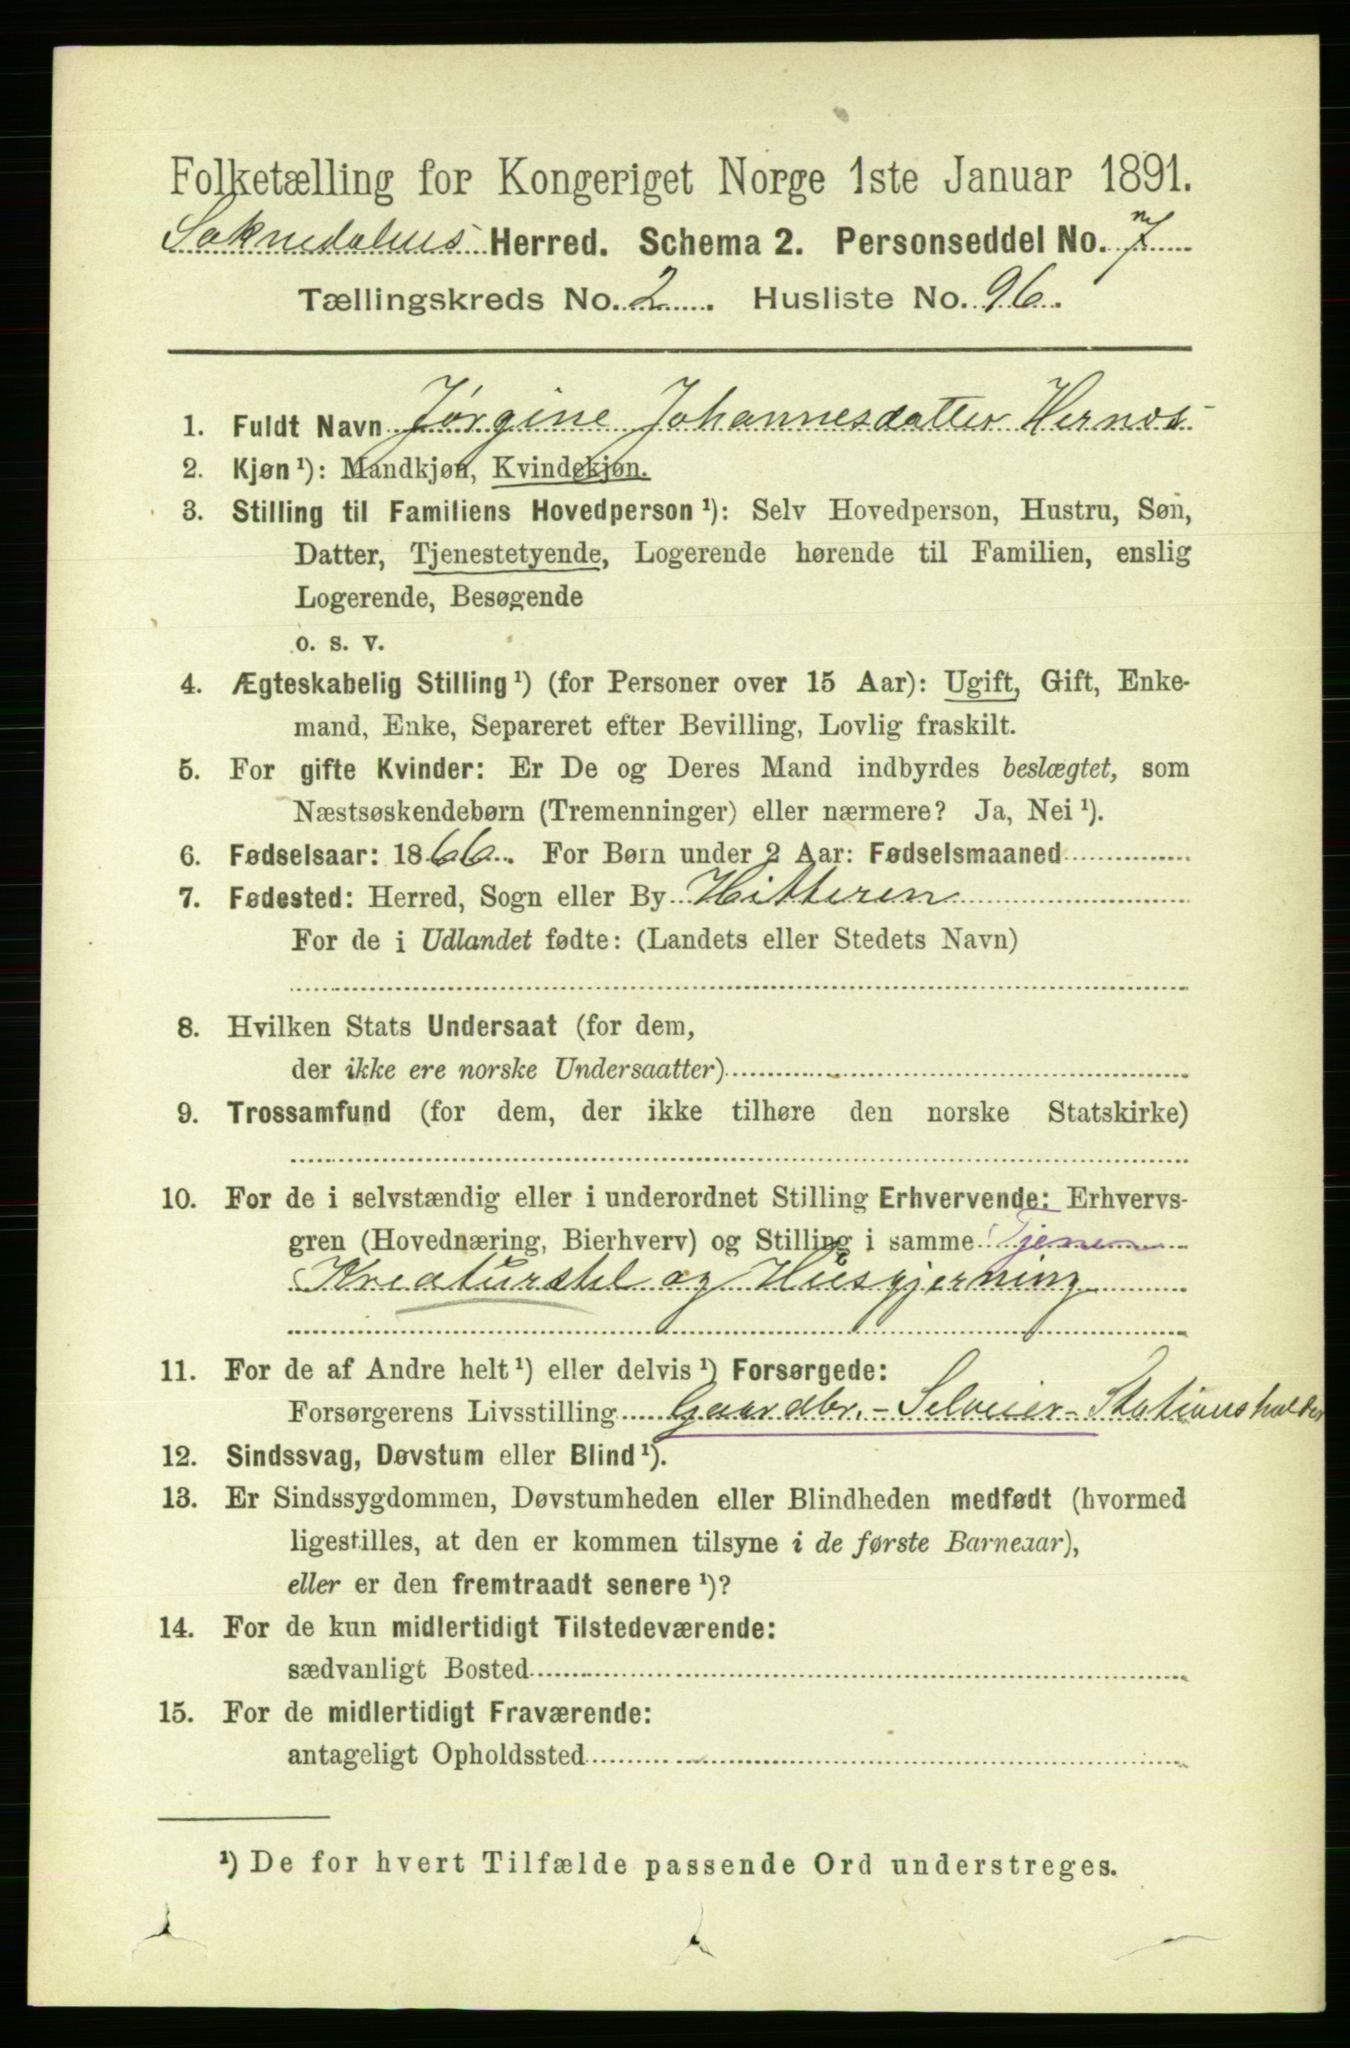 Folketælling for Kongeriget Norge 1ste Januar 1891.
Soknedalens Herred. Schema 2. Personseddel No. 7
Tællingskreds No. 2. Husliste No. 96.
1. Fuldt Navn Jørgine Johannesdatter Hernes
2. Kjøn ¹): Mandkjøn, Kvindekjøn.
3. Stilling til Familiens Hovedperson ¹): Selv Hovedperson, Hustru, Søn,
Datter, Tjenestetyende, Logerende hørende til Familien, enslig
Logerende, Besøgende
o. s. v.
4. Ægteskabelig Stilling ¹) (for Personer over 15 Aar): Ugift, Gift, Enke-
mand, Enke, Separeret efter Bevilling, Lovlig fraskilt.
5. For gifte Kvinder: Er De og Deres Mand indbyrdes beslægtet, som
Næstsøskendebørn (Tremenninger) eller nærmere? Ja, Nei ¹).
6. Fødselsaar: 1866. For Børn under 2 Aar: Fødselsmaaned
7. Fødested: Herred, Sogn eller By Hitteren
For de i Udlandet fødte: (Landets eller Stedets Navn)
8. Hvilken Stats Undersaat (for dem,
der ikke ere norske Undersaatter)
9. Trossamfund (for dem, der ikke tilhøre den norske Statskirke)
10. For de i selvstændig eller i underordnet Stilling Erhvervende: Erhvervs-
gren (Hovednæring, Bierhverv) og Stilling i samme
Kreaturstel og Husgjerning
11. For de af Andre helt ¹) eller delvis ¹) Forsørgede:
Forsørgerens Livsstilling Gaardbr. - Selveier - Stationsholder
12. Sindssvag, Døvstum eller Blind ¹).
13. Er Sindssygdommen, Døvstumheden eller Blindheden medfødt (hvormed
ligestilles, at den er kommen tilsyne i de første Barneaar),
eller er den fremtraadt senere ¹)?
14. For de kun midlertidigt Tilstedeværende:
sædvanligt Bosted
15. For de midlertidigt Fraværende:
antageligt Opholdssted
¹) De for hvert Tilfælde passende Ord understreges.